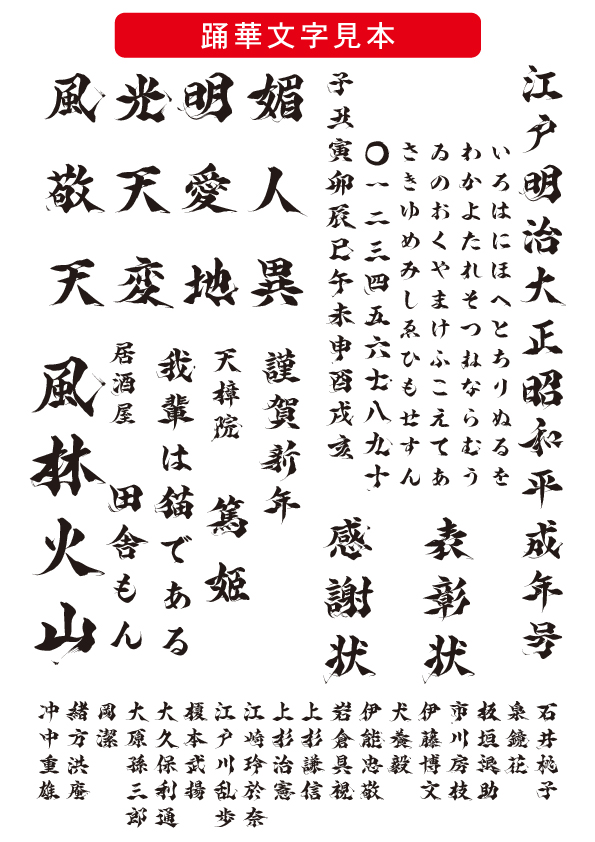 踊華文字見本
江戸明治大正昭和平成年号
いろはにほへとちりぬるを
わかよたれそつねならむう
ゐのおくやまけふこえてあ
さきゆめみしゑひもせすん
〇一二三四五六七八九十
子丑寅卯辰巳午未申酉戌亥
表彰状
感謝状
媚人異
明愛地
光天変
風敬天
謹賀新年
天樟院 篤姫
我輩は猫である
居酒屋 田舎もん
風林火山
石井桃子
泉鏡花
板垣退助
市川房枝
伊藤博文
犬養毅
伊能忠敬
岩倉具視
上杉謙信
上杉治憲
江崎玲於奈
江戸川乱歩
榎本武揚
大久保利通
大原孫三郎
岡潔
緒方洪庵
沖中重雄